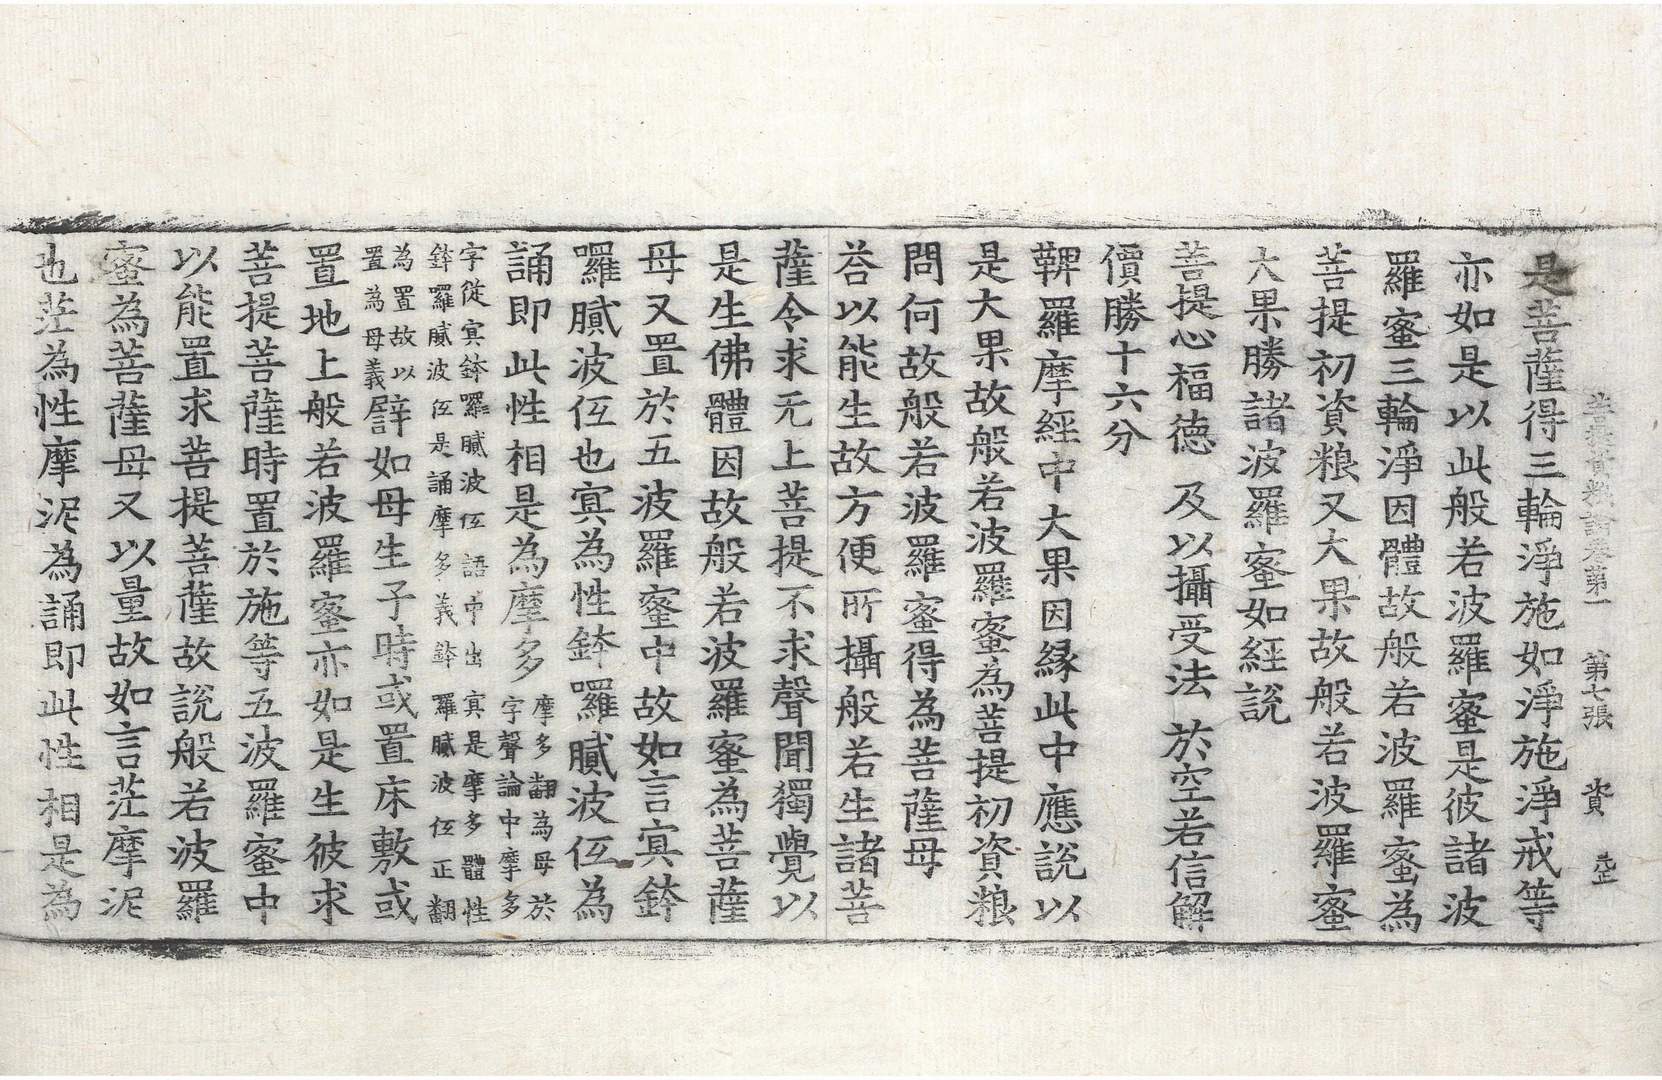 菩提資粮論卷第一　第七張　資
是菩薩得三輪淨施如淨施淨戒等
亦如是以此般若波羅蜜是彼諸波
羅蜜三輪淨因體故般若波羅蜜為
菩提初資粮又大果故般若波羅蜜
大果勝諸波羅蜜如經說
菩提心福德　及以攝受法　於空若信解
價勝十六分
鞞羅摩經中大果因緣此中應說以
是大果故般若波羅蜜為菩提初資粮
問何故般若波羅蜜得為菩薩母
荅以能生故方便所攝般若生諸菩
薩令求无上菩提不求聲聞獨覺以
是生佛體因故般若波羅蜜為菩薩
母又置於五波羅蜜中故如言㝠鉢
囉膩波低也㝠為性鉢囉膩波低為
誦即此性相是為摩多摩多翻為母於
字聲論中摩多
字從㝠鉢囉膩波低語中出㝠是摩多體性
鉢囉膩波低是誦摩多義鉢囉膩波低正翻
為置故以
置為母義譬如母生子時或置床敷或
置地上般若波羅蜜亦如是生彼求
菩提菩薩時置於施等五波羅蜜中
以能置求菩提菩薩故說般若波羅
蜜為菩薩母又以量故如言茫摩泥
也茫為性摩泥為誦即此性相是為